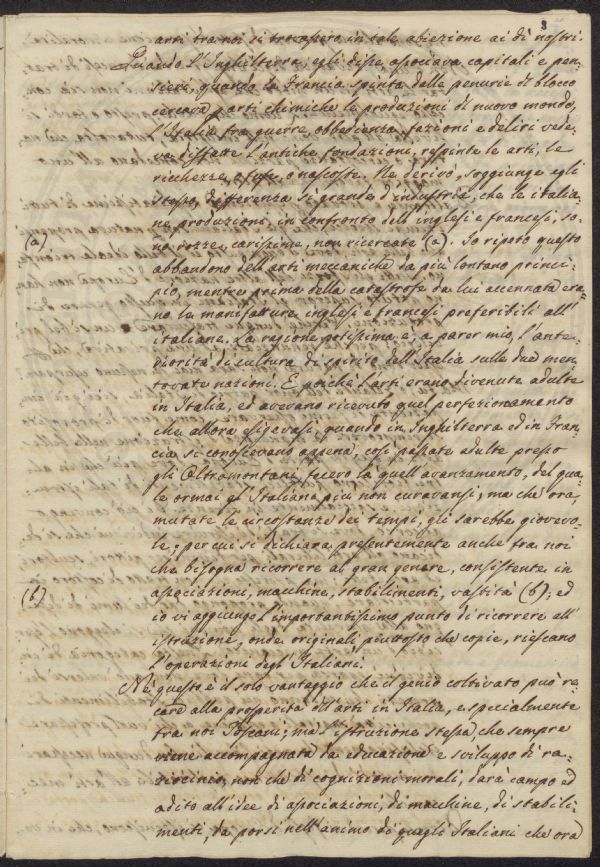 3
arti tra noi si trovassero in tale abiezione ai dì nostri
Quando l'Inghilterra, egli disse, associava capitali e pen-
sieri, quando la Francia spinta dalle penurie di blocco
cercava parti chimiche le produzioni di nuovo mondo,
l'Italia tra guerre, obbedienza, fazioni e deliri vede-
va disfatte l'antiche fondazioni, respinte le arti, le
ricchezze o nascoste. Ne derivò, soggiunge egli
stesso, differenza sì grande d'industria, che le italia-
ne produzioni, in confronto dell'inglesi e francesi, so-
(a) no rozze, carissime, non ricercate (a). Io ripeto questo
abbandono dell'arti meccaniche da più lontano princi-
pio, mentre prima della catastrofe da lui accennata era-
no le manifatture inglesi e francesi preferibili all'
italiane. La ragione potissima è, a parer mio, l'ante-
riorità di cultura di spirito dell'Italia sulle due men-
tovate nazioni. E poichè l'arti erano divenute adulte
in Italia, ed avevano ricevuto quel perfezionamento
che allora esigevasi, quando in Inghilterra ed in Fran-
cia si conoscevano appena, così passate adulte presso
gli Oltramontani, fecero là quell'avanzamento, del qua-
le ormai gl'Italiani più non curavansi; ma che ora
mutate le circostanze dei tempi, gli sarebbe giovevo-
le; per cui si dichiara presentemente anche tra noi
che bisogna ricorrere al gran genere, consistente in
(b) associazioni, macchine, stabilimenti, vastità (b); ed
io vi aggiungo l'importantissimo punto di ricorrere all'
istruzione, onde originali piuttosto che copie, riescano
l'operazioni degl'Italiani.
Nè questo è il solo vantaggio che il genio coltivato può re-
care alla prosperità dell'arti in Italia, e specialmente
tra noi Toscani; ma l'istruzione stessa, che sempre
viene accompagnata da educazione e sviluppo di ra-
ziocinio, non che di cognizioni morali, darà campo ed
adito all'idee di associazioni, di macchine, di stabili-
menti, da porsi nell'animo di quegli Italiani che ora